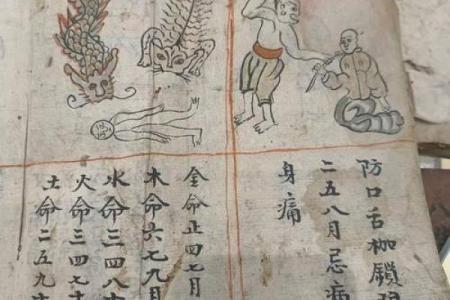 防口舌枷鎖
二五八月忌
身痛
金命正四七月
木命六七九月
水命三四八
火命三四七
土命二五九